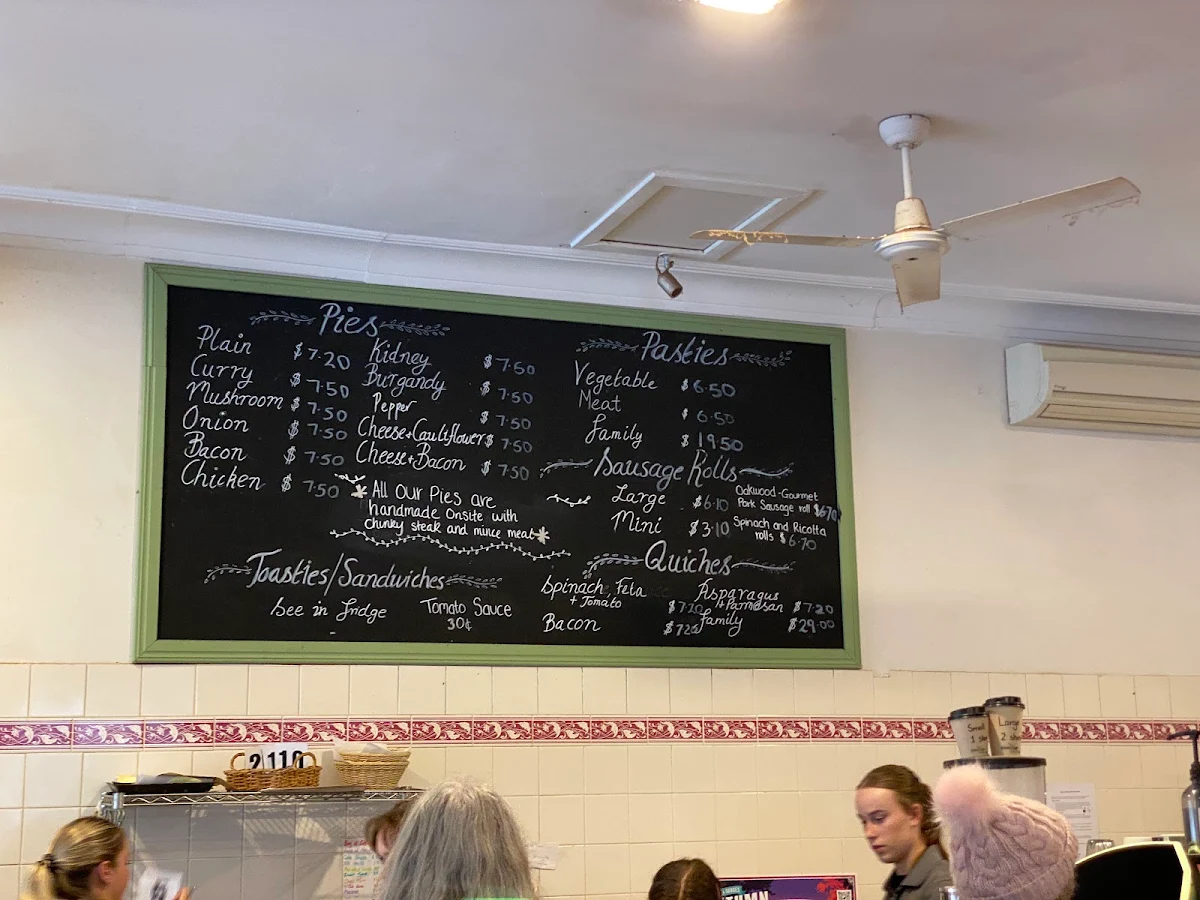 Pies
Plain $7.20
Curry $7.50
Mushroom $7.50
Onion $7.50
Bacon $7.50
Chicken $7.50
Kidney $7.50
Burgandy $7.50
Pepper $7.50
Cheese+Cauliflower $7.50
Cheese+Bacon $7.50
All our Pies are
handmade Onsite with
chunky steak and mince meat
Toasties/Sandwiches
See in fridge
Tomato Sauce
30¢
Pasties
Vegetable $6.50
Meat $6.50
family $19.50
Sausage Rolls
Large $6.10
Mini $3.10
Oakwood-Gourmet
Pork Sausage roll $6.70
Spinach and Ricotta
rolls $6.70
Quiches
Spinach, Feta
+ Tomato $7.20
Bacon $7.20
Asparagus
+Parmesan $7.20
family $29.00
2110